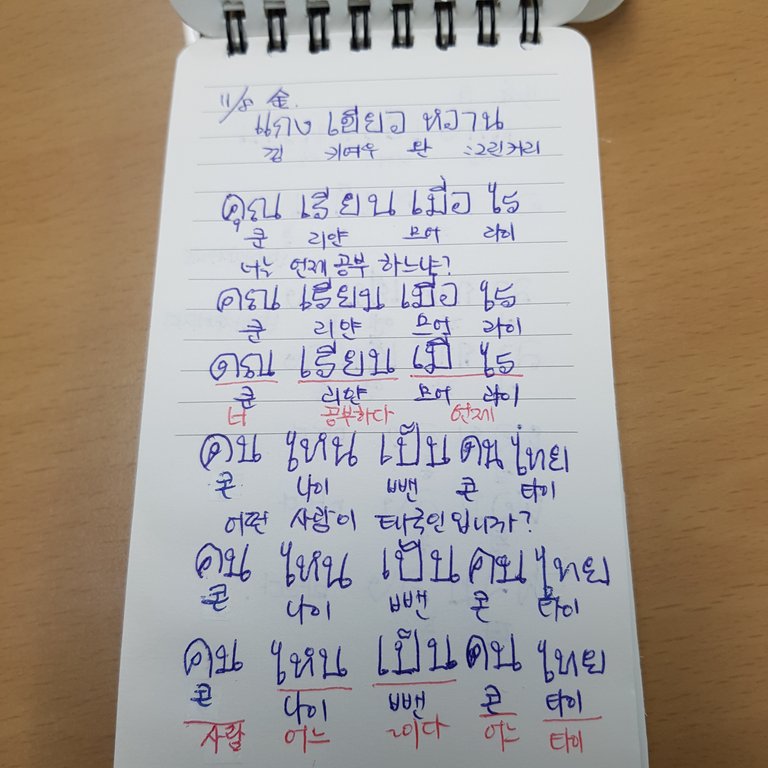 11/8 金.
แกง เขียว หวาน
낑 키여우 완 :그린커리
คุณ เรียน เมื่อ ไร
쿤 리얀 므어 라이
너는 언제 공부 하느냐?
คุณ เรียน เมื่อ ไร
쿤 리얀 므어 라이
คุณ เรียน เมื่ ไร
쿤 리얀 므어 라이
너 공부하다 언제
คน ไหน เป็น คน ไทย
콘 나이 뻰 콘 타이
어떤 사람이 태국인 입니까?
คน ไหน เป็น คน ไทย
콘 나이 뻰 콘 타이
คน ไหน เป็น คน ไทย
콘 나이 뻰 콘 타이
사람 어느 ~이다 어느 타이